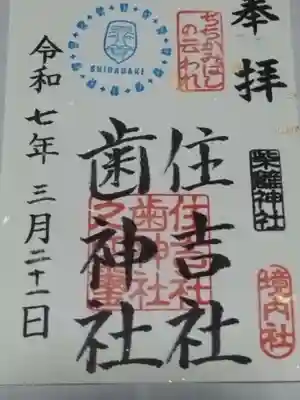 奉拝
ちちかみはし
の云われ
柴籬神社
境内社
住吉社
歯神社
住吉社
歯神社
之印璽
SHIBAGAKI
令和七年三月二十一日